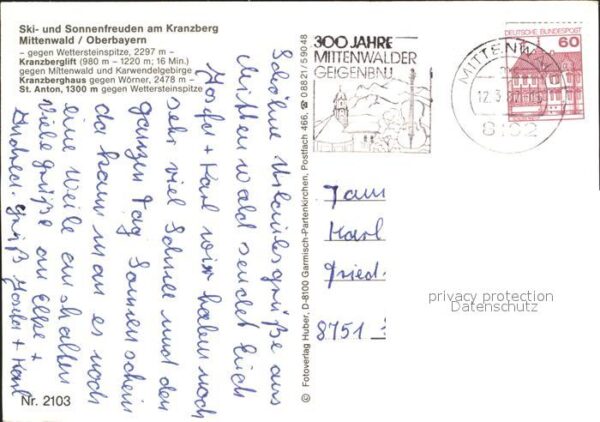 Ski- und Sonnenfreuden am Kranzberg
Mittenwald / Oberbayern
– gegen Wettersteinspitze, 2297 m –
Kranzberglift (980 m – 1220 m; 16 Min.)
gegen Mittenwald und Karwendelgebirge
Kranzberghaus gegen Wörner, 2478 m –
St. Anton, 1300 m gegen Wettersteinspitze
Schöne Urlaubsgrüße aus
Mittenwald sendet Euch
Josefa + Karl wir haben noch
sehr viel Schnee und den
ganzen Tag Sonnenschein
da kann man es noch
eine Weile aushalten
Viele Grüße an Elke +
Andrea. Gruß Josefa + Karl
Nr. 2103
© Fotoverlag Huber, D-8100 Garmisch-Partenkirchen, Postfach 466, ☎ 08821/59048
300 JAHRE
MITTENWALDER
GEIGENBAU
MITTENW
12.3.87
8102
DEUTSCHE BUNDESPOST
60
Fam
Karl
Fried.
8751
privacy protection
Datenschutz